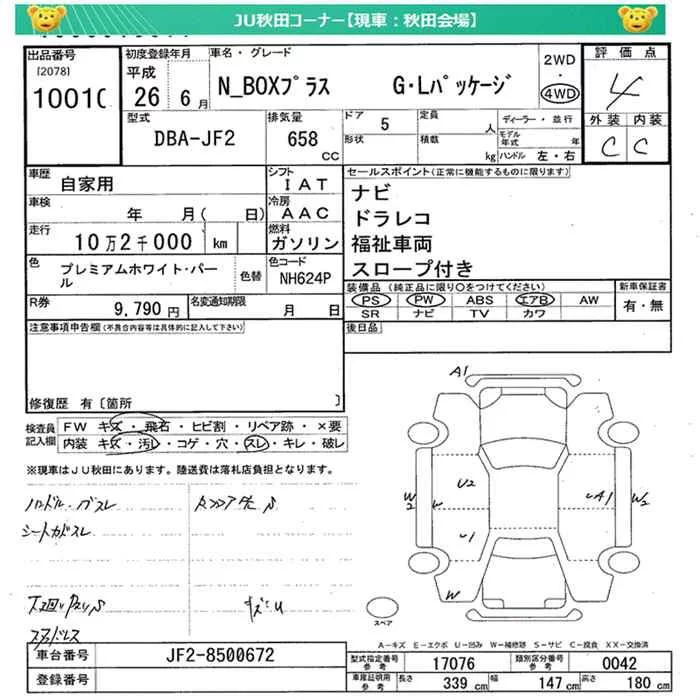 JU秋田コーナー【現車：秋田会場】
出品番号
[2078]
初度登録年月
平成
26 6 月
車名・グレード
N_BOXプラス G・Lパッケージ
2WD
・
4WD
評価点
4
型式
DBA-JF2
排気量
658
CC
ドア 5
形状
定員
人
積載
kg
ディーラー・並行
モデル年式 年
ハンドル 左・右
外装 内装
C C
車歴
自家用
シフト
IAT
車検
年 月( 日)
冷房
AAC
走行
10万2千000 km
燃料
ガソリン
色
プレミアムホワイト・パール
色替
色コード
NH624P
R券
9,790 円
名変通知期限
月 日
セールスポイント(正常に機能するものに限ります)
ナビ
ドラレコ
福祉車両
スロープ付き
装備品 (純正品に限り○をつけてください)
PS PW ABS エアB AW
SR ナビ TV カワ
新車保証書
有・無
後日品
注意事項申告欄(不具合内容等は具体的に記入して下さい)
修復歴 有〔箇所 〕
検査員記入欄
FW キズ・飛石・ヒビ割・リペア跡・×要
内装 キズ・汚レ・コゲ・穴・スレ・キレ・破レ
※現車はJU秋田にあります。陸送費は落札店負担となります。
A1
W2
W
U2
A1
W2
W
スペア
A－キズ E－エクボ U－凹み W－補修跡 S－サビ C－腐食 XX－交換済
車台番号 JF2-8500672
登録番号
型式指定番号 17076 類別区分番号 0042
車庫証明用参考 長さ 339 cm 幅 147 cm 高さ 180 cm